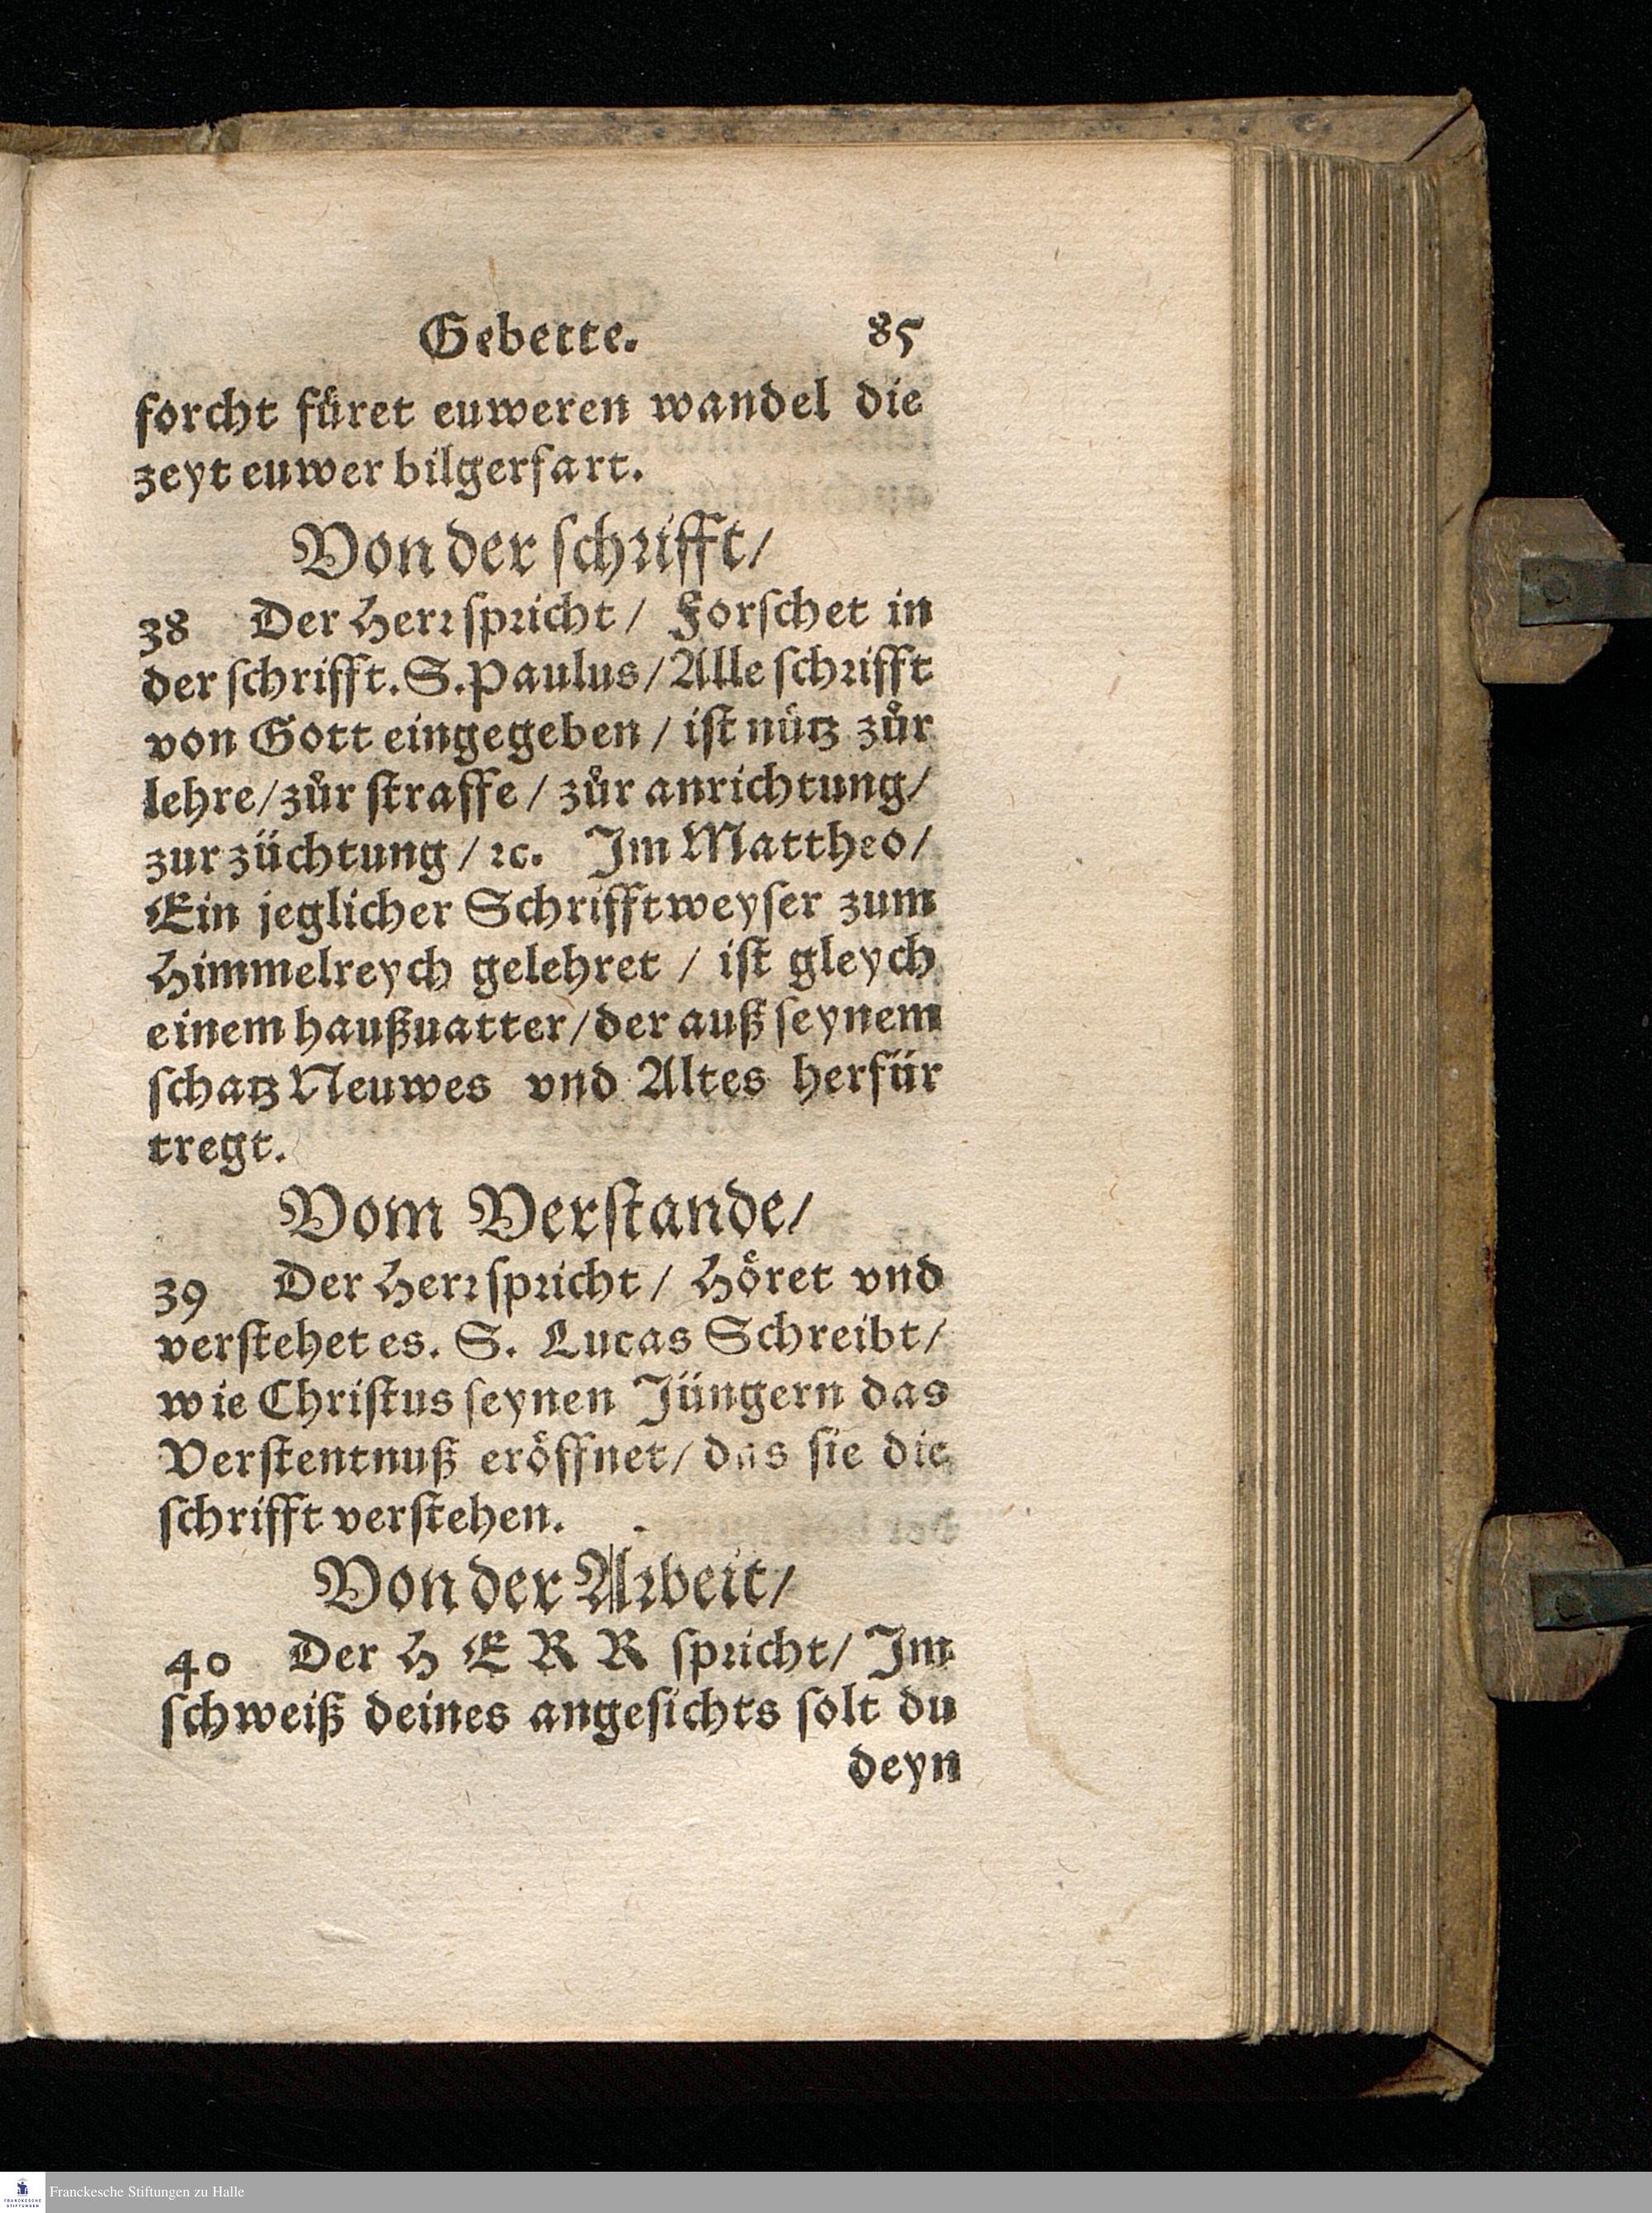 Gebette. 85
forcht fůret euweren wandel die
zeyt euwer bilgerfart.
Von der ſchꝛifft/
38 Der Herꝛ ſpꝛicht/ Forſchet in
der ſchrifft. S. Paulus/ Alle ſchꝛifft
von Gott eingegeben/ iſt nütz zůr
lehre/ zůr ſtraffe/ zůr anrichtung/
zur züchtung/ ꝛc. Im Mattheo/
Ein jeglicher Schrifftweyſer zum
Himmelreych gelehret/ iſt gleych
einem haußuatter/ der auß ſeynem
ſchatz Neuwes vnd Altes herfür
tregt.
Vom Verſtande/
39 Der Herꝛ ſpꝛicht/ Hoͤret vnd
verſtehet es. S. Lucas Schreibt/
wie Chriſtus ſeynen Jüngern das
Verſtentnuß eroͤffnet/ das ſie die
ſchrifft verſtehen.
Von der Aꝛbeit/
40 Der HERR ſpꝛicht/ Im
ſchweiß deines angeſichts ſolt du
deyn
FRANCKESCHE STIFTUNGEN
Franckesche Stiftungen zu Halle